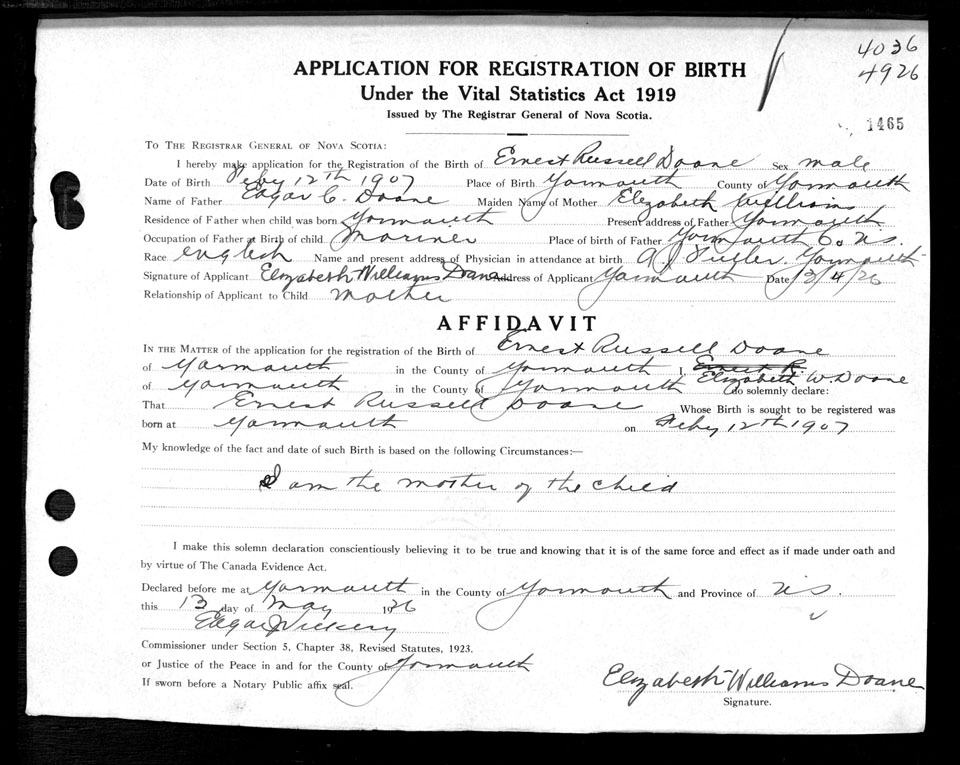 4036
4926
APPLICATION FOR REGISTRATION OF BIRTH
Under the Vital Statistics Act 1919
Issued by The Registrar General of Nova Scotia.
1465
TO THE REGISTRAR GENERAL OF NOVA SCOTIA:
I hereby make application for the Registration of the Birth of Ernest Russell Doane Sex male
Date of Birth Feby 12th 1907 Place of Birth Yarmouth County of Yarmouth
Name of Father Edgar C. Doane Maiden Name of Mother Elizabeth Williams
Residence of Father when child was born Yarmouth Present address of Father Yarmouth
Occupation of Father at Birth of child Mariner Place of birth of Father Yarmouth Co. N.S.
Race English Name and present address of Physician in attendance at birth A. J. Fuller. Yarmouth
Signature of Applicant Elizabeth Williams Doane Address of Applicant Yarmouth Date 13/4/26
Relationship of Applicant to Child Mother
AFFIDAVIT
IN THE MATTER of the application for the registration of the Birth of Ernest Russell Doane
of Yarmouth in the County of Yarmouth I, Ernest R.
of Yarmouth in the County of Yarmouth Elizabeth W. Doane do solemnly declare:
That Ernest Russell Doane Whose Birth is sought to be registered was
born at Yarmouth on Feby 12th 1907
My knowledge of the fact and date of such Birth is based on the following Circumstances:—
I am the mother of the child
I make this solemn declaration conscientiously believing it to be true and knowing that it is of the same force and effect as if made under oath and
by virtue of The Canada Evidence Act.
Declared before me at Yarmouth in the County of Yarmouth and Province of N.S.
this 13 day of May 1926
Edgar J Vickery
Commissioner under Section 5, Chapter 38, Revised Statutes, 1923.
or Justice of the Peace in and for the County of Yarmouth
If sworn before a Notary Public affix seal.
Elizabeth Williams Doane
Signature.